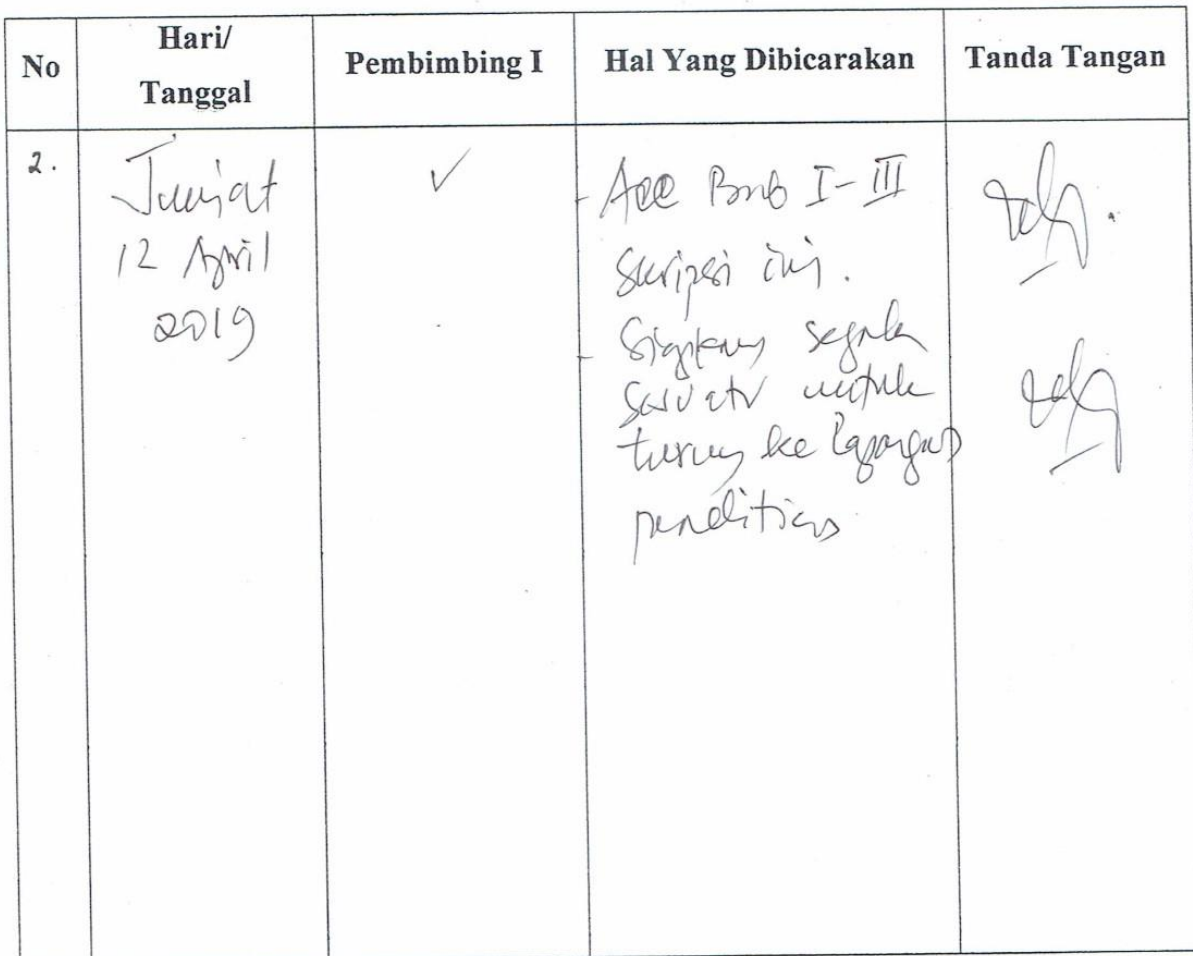 No
Hari/
Tanggal
Pembimbing I
Hal Yang Dibicarakan
Tanda Tangan
2.
Jum'at
12 April
2019
✓
- Acc Bab I-III
Skripsi ini.
- Siapkan segala
sesuatu untuk
turun ke lapangan
penelitian